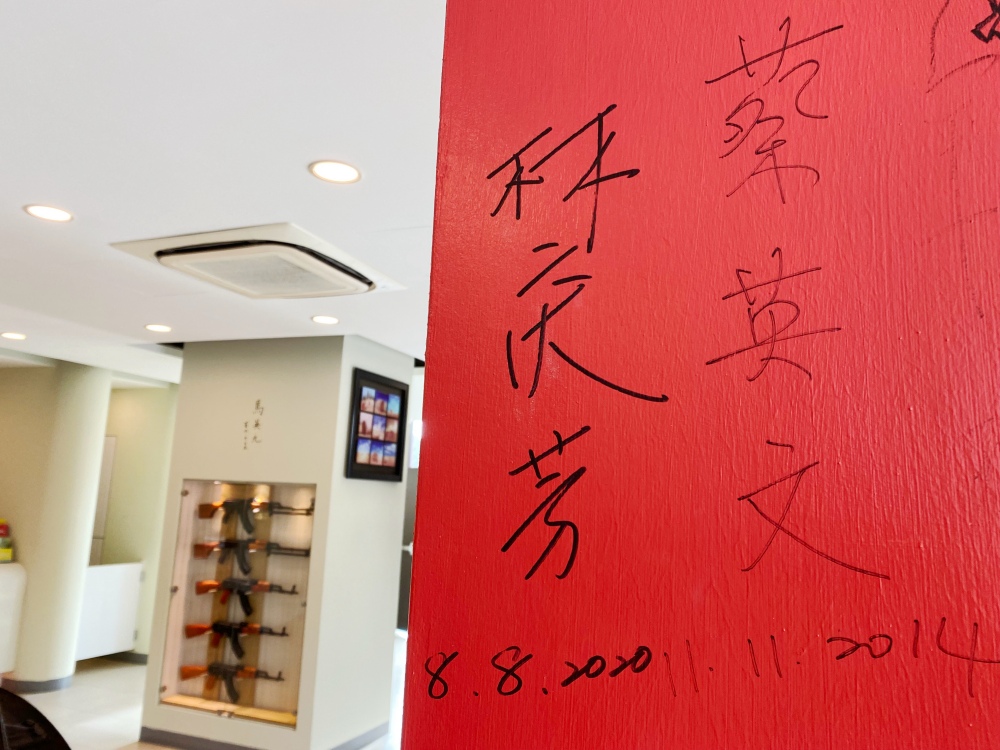 蔡英文
11.11.2014
林庆芳
8.8.2020
馬英九